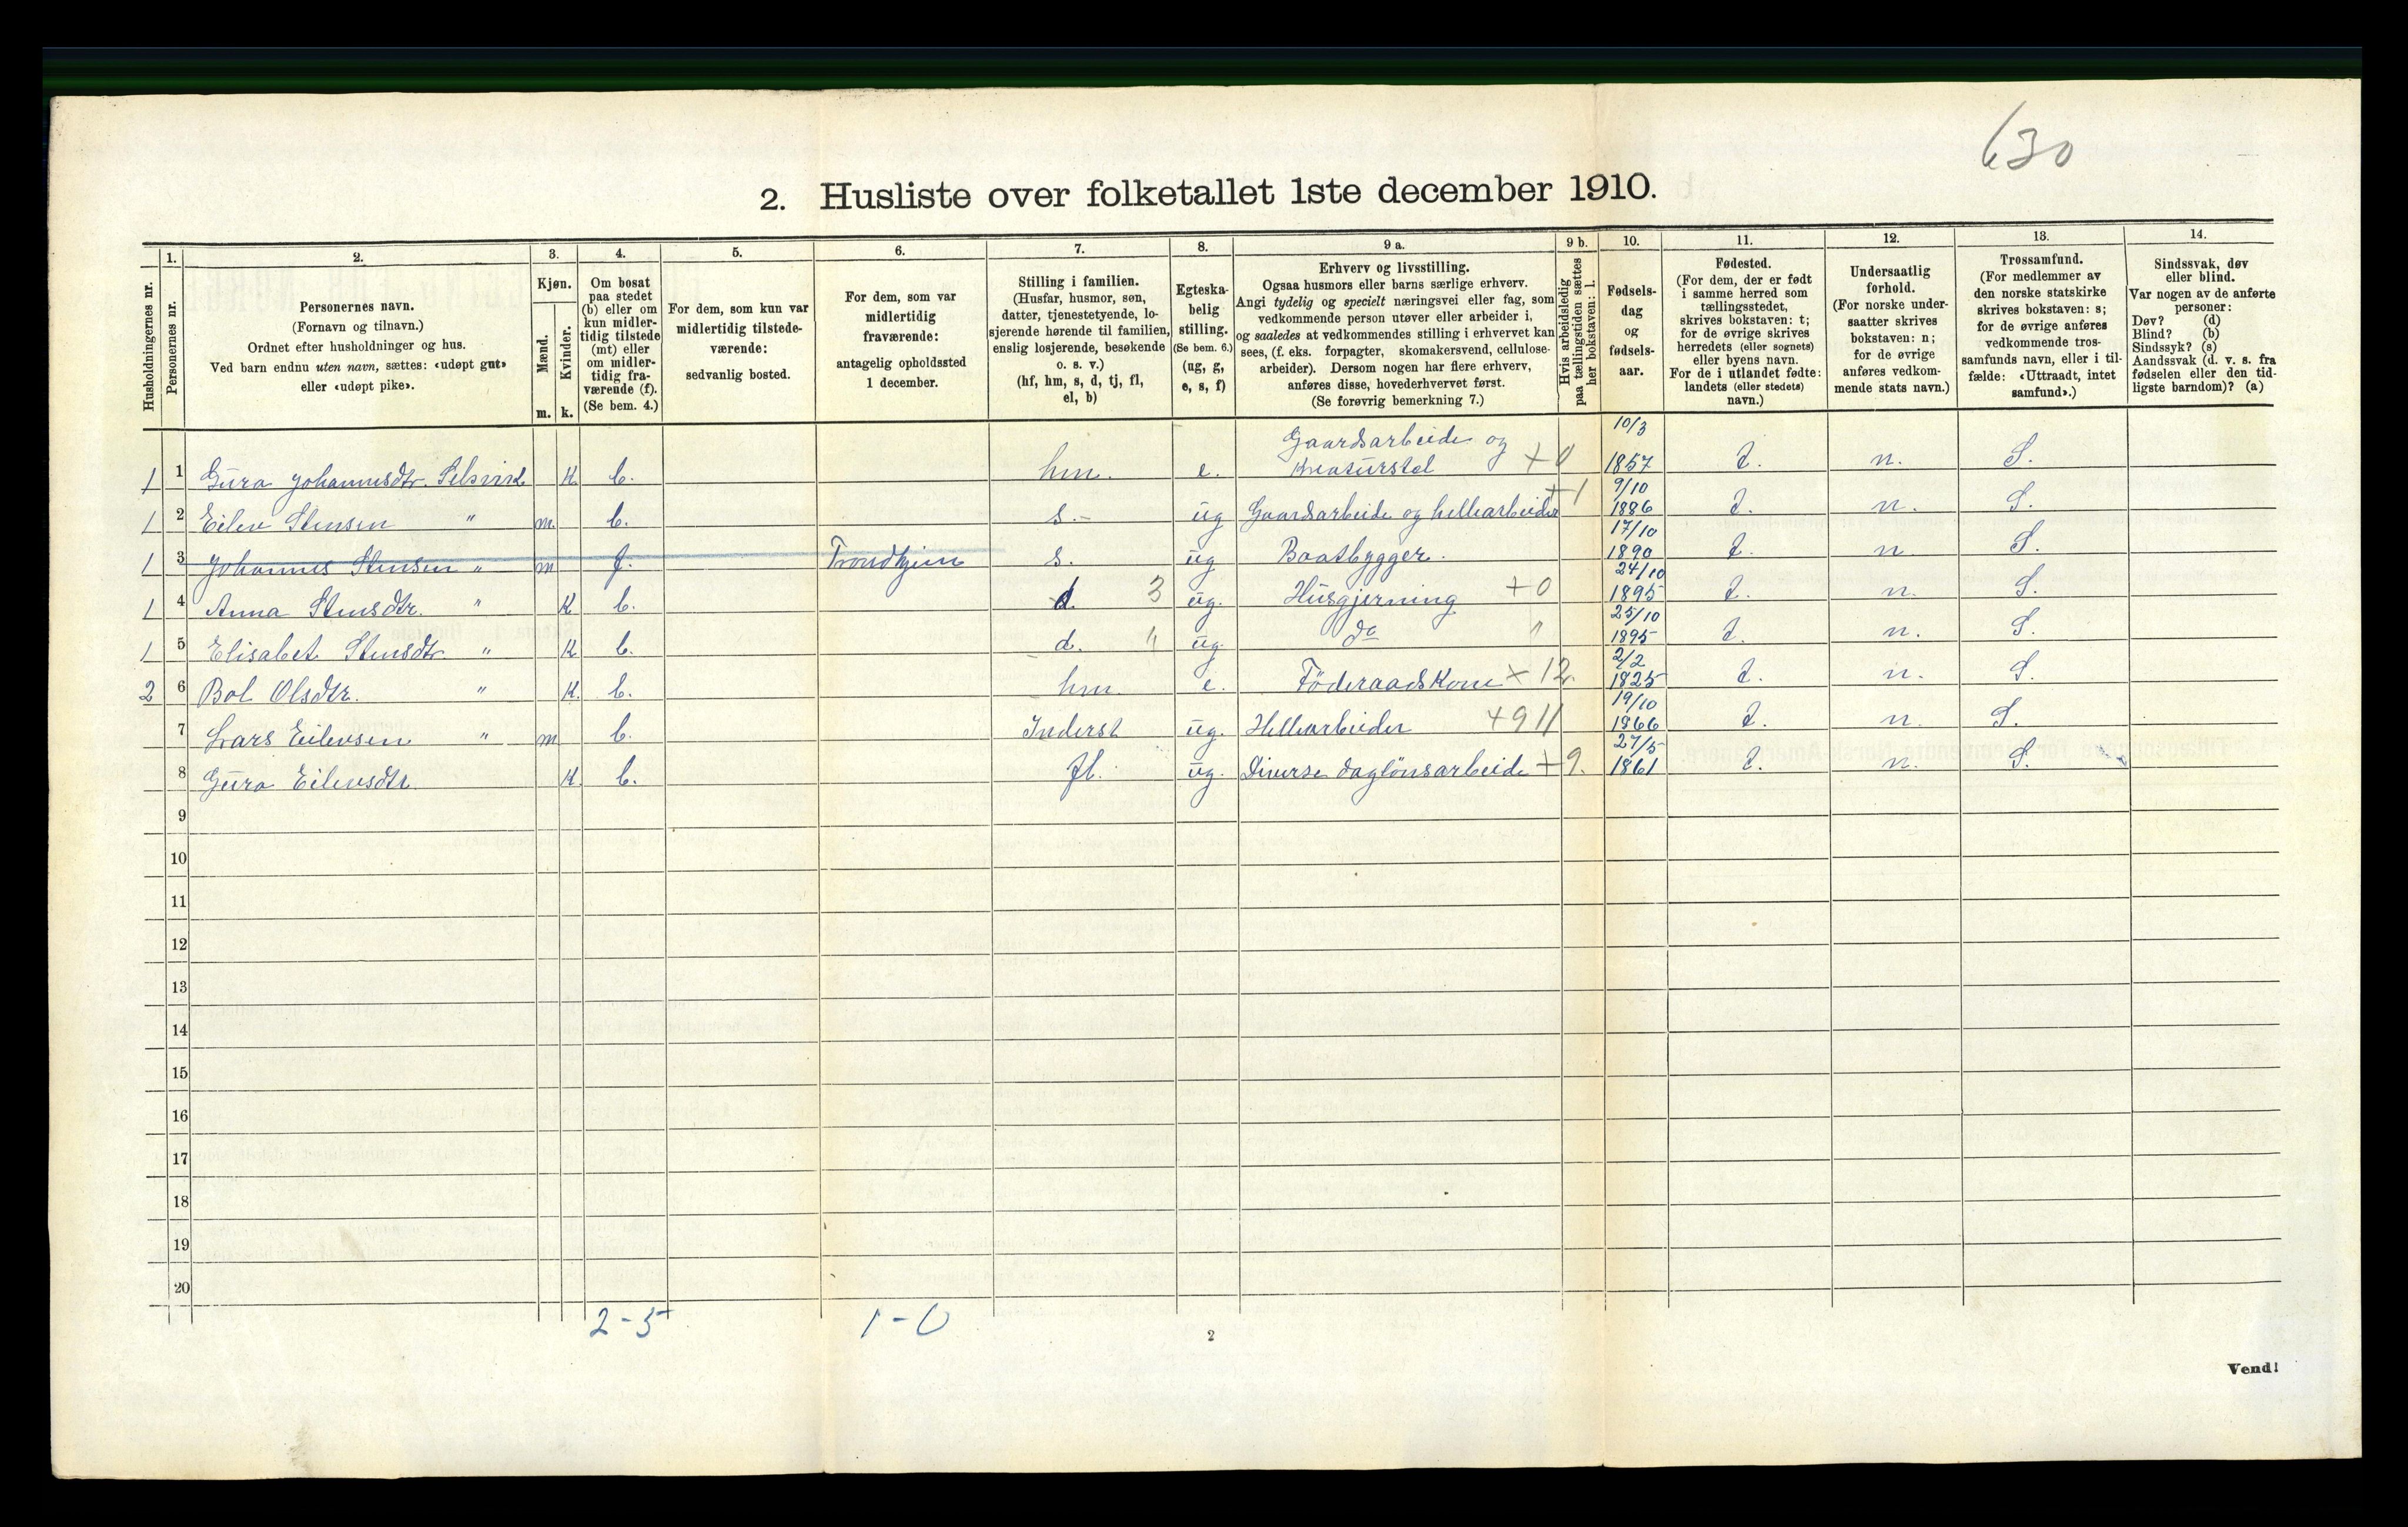 630
2. Husliste over folketallet 1ste december 1910.
Husholdningernes nr.
1.
Personernes nr.
2.
Personernes navn.
(Fornavn og tilnavn.)
Ordnet efter husholdninger og hus.
Ved barn endnu uten navn, sættes: «udøpt gut»
eller «udøpt pike».
3.
Kjøn.
Mænd.
Kvinder.
m. k.
4.
Om bosat
paa stedet
(b) eller om
kun midler-
tidig tilstede
(mt) eller
om midler-
tidig fra-
værende (f).
(Se bem. 4.)
5.
For dem, som kun var
midlertidig tilstede-
værende:
sedvanlig bosted.
6.
For dem, som var
midlertidig
fraværende:
antagelig opholdssted
1 december.
7.
Stilling i familien.
(Husfar, husmor, søn,
datter, tjenestetyende, lo-
sjerende hørende til familien,
enslig losjerende, besøkende
o. s. v.)
(hf, hm, s, d, tj, fl,
el, b)
8.
Egteska-
belig
stilling.
(Se bem. 6.)
(ug, g,
e, s, f)
9 a.
Erhverv og livsstilling.
Ogsaa husmors eller barns særlige erhverv.
Angi tydelig og specielt næringsvei eller fag, som
vedkommende person utøver eller arbeider i,
og saaledes at vedkommendes stilling i erhvervet kan
sees, (f. eks. forpagter, skomakersvend, cellulose-
arbeider). Dersom nogen har flere erhverv,
anføres disse, hovederhvervet først.
(Se forøvrig bemerkning 7.)
9 b.
Hvis arbeidsledig
paa tællingstiden sættes
her bokstaven: l.
10.
Fødsels-
dag
og
fødsels-
aar.
11.
Fødested.
(For dem, der er født
i samme herred som
tællingsstedet,
skrives bokstaven: t;
for de øvrige skrives
herredets (eller sognets)
eller byens navn.
For de i utlandet fødte:
landets (eller stedets)
navn.)
12.
Undersaatlig
forhold.
(For norske under-
saatter skrives
bokstaven: n;
for de øvrige
anføres vedkom-
mende stats navn.)
13.
Trossamfund.
(For medlemmer av
den norske statskirke
skrives bokstaven: s;
for de øvrige anføres
vedkommende tros-
samfunds navn, eller i til-
fælde: «Uttraadt, intet
samfund».)
14.
Sindssvak, døv
eller blind.
Var nogen av de anførte
personer:
Døv? (d)
Blind? (b)
Sindssyk? (s)
Aandssvak (d. v. s. fra
fødselen eller den tid-
ligste barndom)? (a)
1 1 Gura Johannesdtr. Selsvik K b. hm. e. Gaardsarbeide og Kreaturstel +0 10/3 1857 t. n. S.
1 2 Eilev Stensen " m. b. s.- ug Gaardsarbeide og hellearbeider +1 9/10 1886 t. n. S.
1 3 Johannes Stensen " m f. Trondhjem s. ug Baatbygger. 17/10 1890 t. n S.
1 4 Anna Stensdtr. " K b. d. 3 ug. Husgjerning +0 24/10 1895 t. n. S.
1 5 Elisabet Stensdtr. " K b. d. " ug. do " 25/10 1895 t. n. S.
2 6 Bol Olsdtr. " K. b. hm. e. Föderaadskone × 12. 2/2 1825 t. n. S.
7 Lars Eilevsen " m b. Inderst ug. Hellearbeider +9 11 19/10 1866 t. n. S.
8 Gura Eilevsdtr. K. b. fl. ug. Diverse daglönsarbeide +9. 27/5 1861 t. n. S.
9
10
11
12
13
14
15
16
17
18
19
20
2-5 1-0
2
Vend!